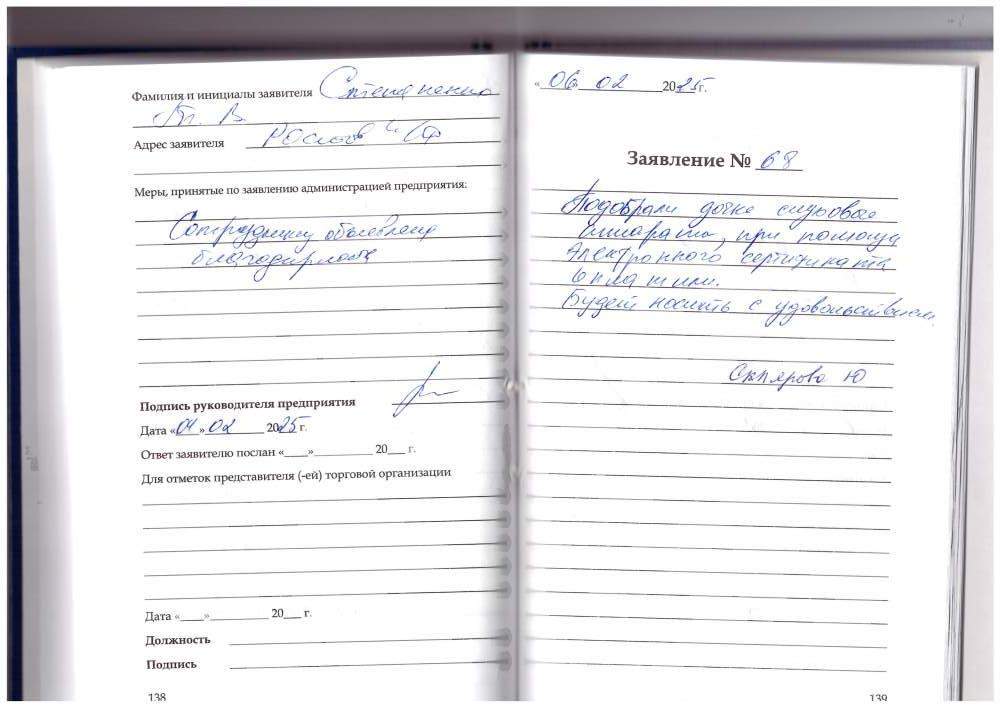 Фамилия и инициалы заявителя Степаненко
Т. В.
Адрес заявителя Ростов
Меры, принятые по заявлению администрацией предприятия:
Сотруднику объявлена
благодарность
Подпись руководителя предприятия
Дата «04» 02 2025 г.
Ответ заявителю послан «____»__________ 20___ г.
Для отметок представителя (-ей) торговой организации
Дата «____»__________ 20___ г.
Должность
Подпись
138
« 06 02 2025г.
Заявление № 68
Подобрали дочке слуховые
аппараты, при помощи
электронного сертификата
оплатили.
Будет носить с удовольствием.
Ю
139